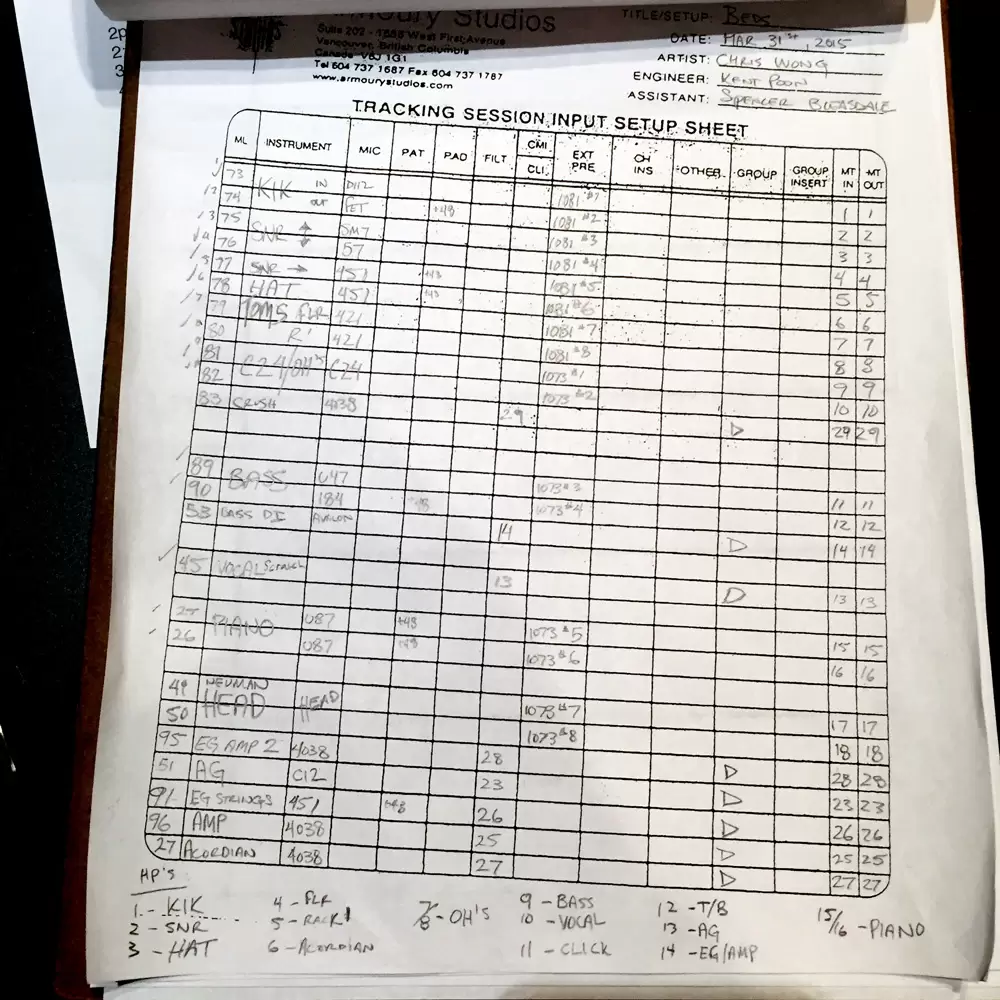 Armoury Studios
Suite 202 - 1688 West First Avenue
Vancouver, British Columbia
Canada V6J 1G1
Tel 604 737 1687 Fax 604 737 1787
www.armourystudios.com
TITLE/SETUP: BEDS
DATE: MAR 31st, 2015
ARTIST: CHRIS WONG
ENGINEER: KENT POON
ASSISTANT: SPENCER BLEASDALE
TRACKING SESSION INPUT SETUP SHEET
ML INSTRUMENT MIC PAT PAD FILT CMI CLI EXT PRE CH INS OTHER GROUP GROUP INSERT MT IN MT OUT
73 KIK IN D112 1081 #1 1 1
74 OUT FET +48 1081 #2 2 2
75 SNR ↑ SM7 1081 #3 3 3
76 ↓ 57 1081 #4 4 4
77 SNR → 451 +48 1081 #5 5 5
78 HAT 451 +48 1081 #6 6 6
79 TOMS FLR 421 1081 #7 7 7
80 R1 421 1081 #8 8 8
81 C24/OH's C24 1073 #1 9 9
82 1073 #2 10 10
83 CRUSH 4038 29 29 29
89 BASS U47 1073 #3 11 11
90 184 +48 1073 #4 12 12
53 BASS DI AVALON 14 14 14
45 VOCAL Scratch 13 13 13
25 PIANO U87 +48 1073 #5 15 15
26 U87 +48 1073 #6 16 16
49 NEUMAN HEAD HEAD 1073 #7 17 17
50 1073 #8 18 18
95 EG AMP 2 4038 28 28 28
51 AG C12 23 23 23
91 EG STRINGS 451 +48 26 26 26
96 AMP 4038 25 25 25
27 ACORDIAN 4038 27 27 27
HP'S
1 - KIK
2 - SNR
3 - HAT
4 - FLR
5 - RACK 1
6 - ACORDIAN
7/8 - OH'S
9 - BASS
10 - VOCAL
11 - CLICK
12 - T/B
13 - AG
14 - EG/AMP
15/16 - PIANO